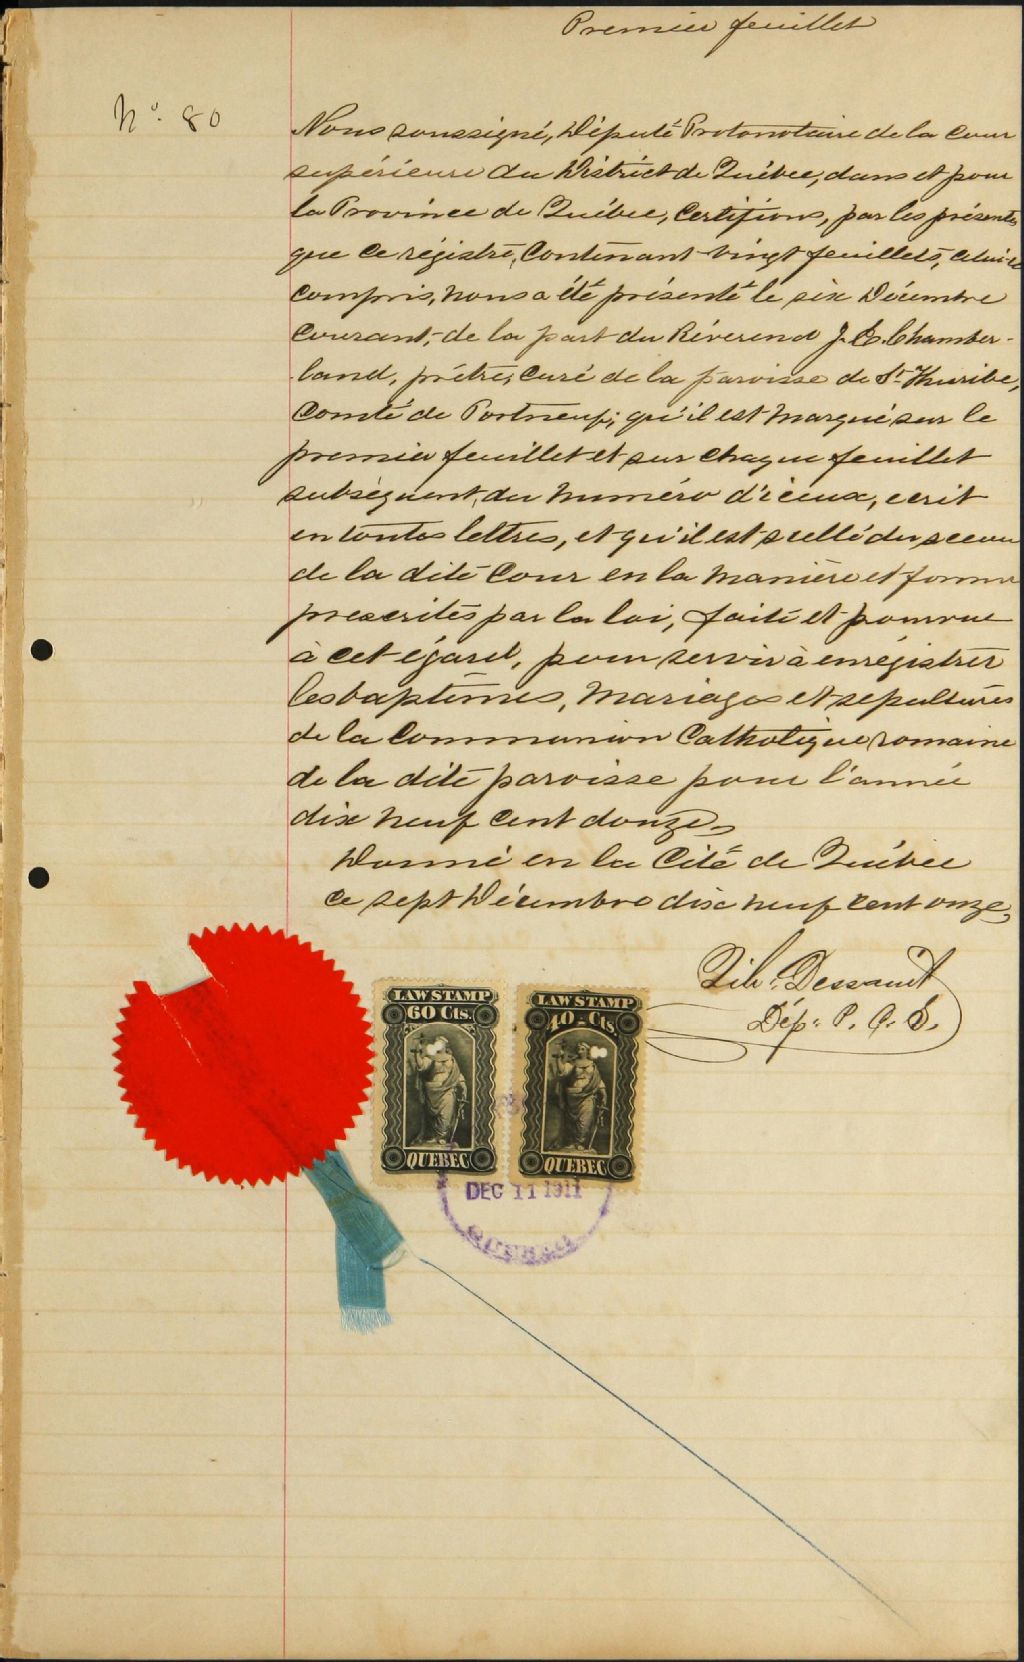 Premier feuillet
No. 80
Nous soussigné, Député Protonotaire de la Cour
supérieure du District de Québec, dans et pour
la Province de Québec, Certifions, par les présentes
que ce régistre, Contenant vingt feuillets, celui-ci
compris, nous a été présenté le six Décembre
Courant, de la part du Révérend J. E. Chamber-
land, prêtre, curé de la paroisse de St Thuribe,
Comté de Portneuf; qu'il est marqué sur le
premier feuillet et sur chaque feuillet
subséquent, du numéro d'iceux, ecrit
en toutes lettres, et qu'il est scellé du sceau
de la dite Cour en la manière et forme
prescrites par la loi, faite et pourvue
à cet égard, pour servir à enrégistrer
les baptêmes, mariages et sepultures
de la Communion Catholique romaine
de la dite paroisse pour l'année
dix neuf cent douze.
Donné en la Cité de Québec
ce sept Décembre dix neuf cent onze,
Dessault
Dép: P. C. S.
LAW STAMP
60 Cts.
QUEBEC
LAW STAMP
40-Cts.
QUEBEC
DEC 11 1911
QUEBEC